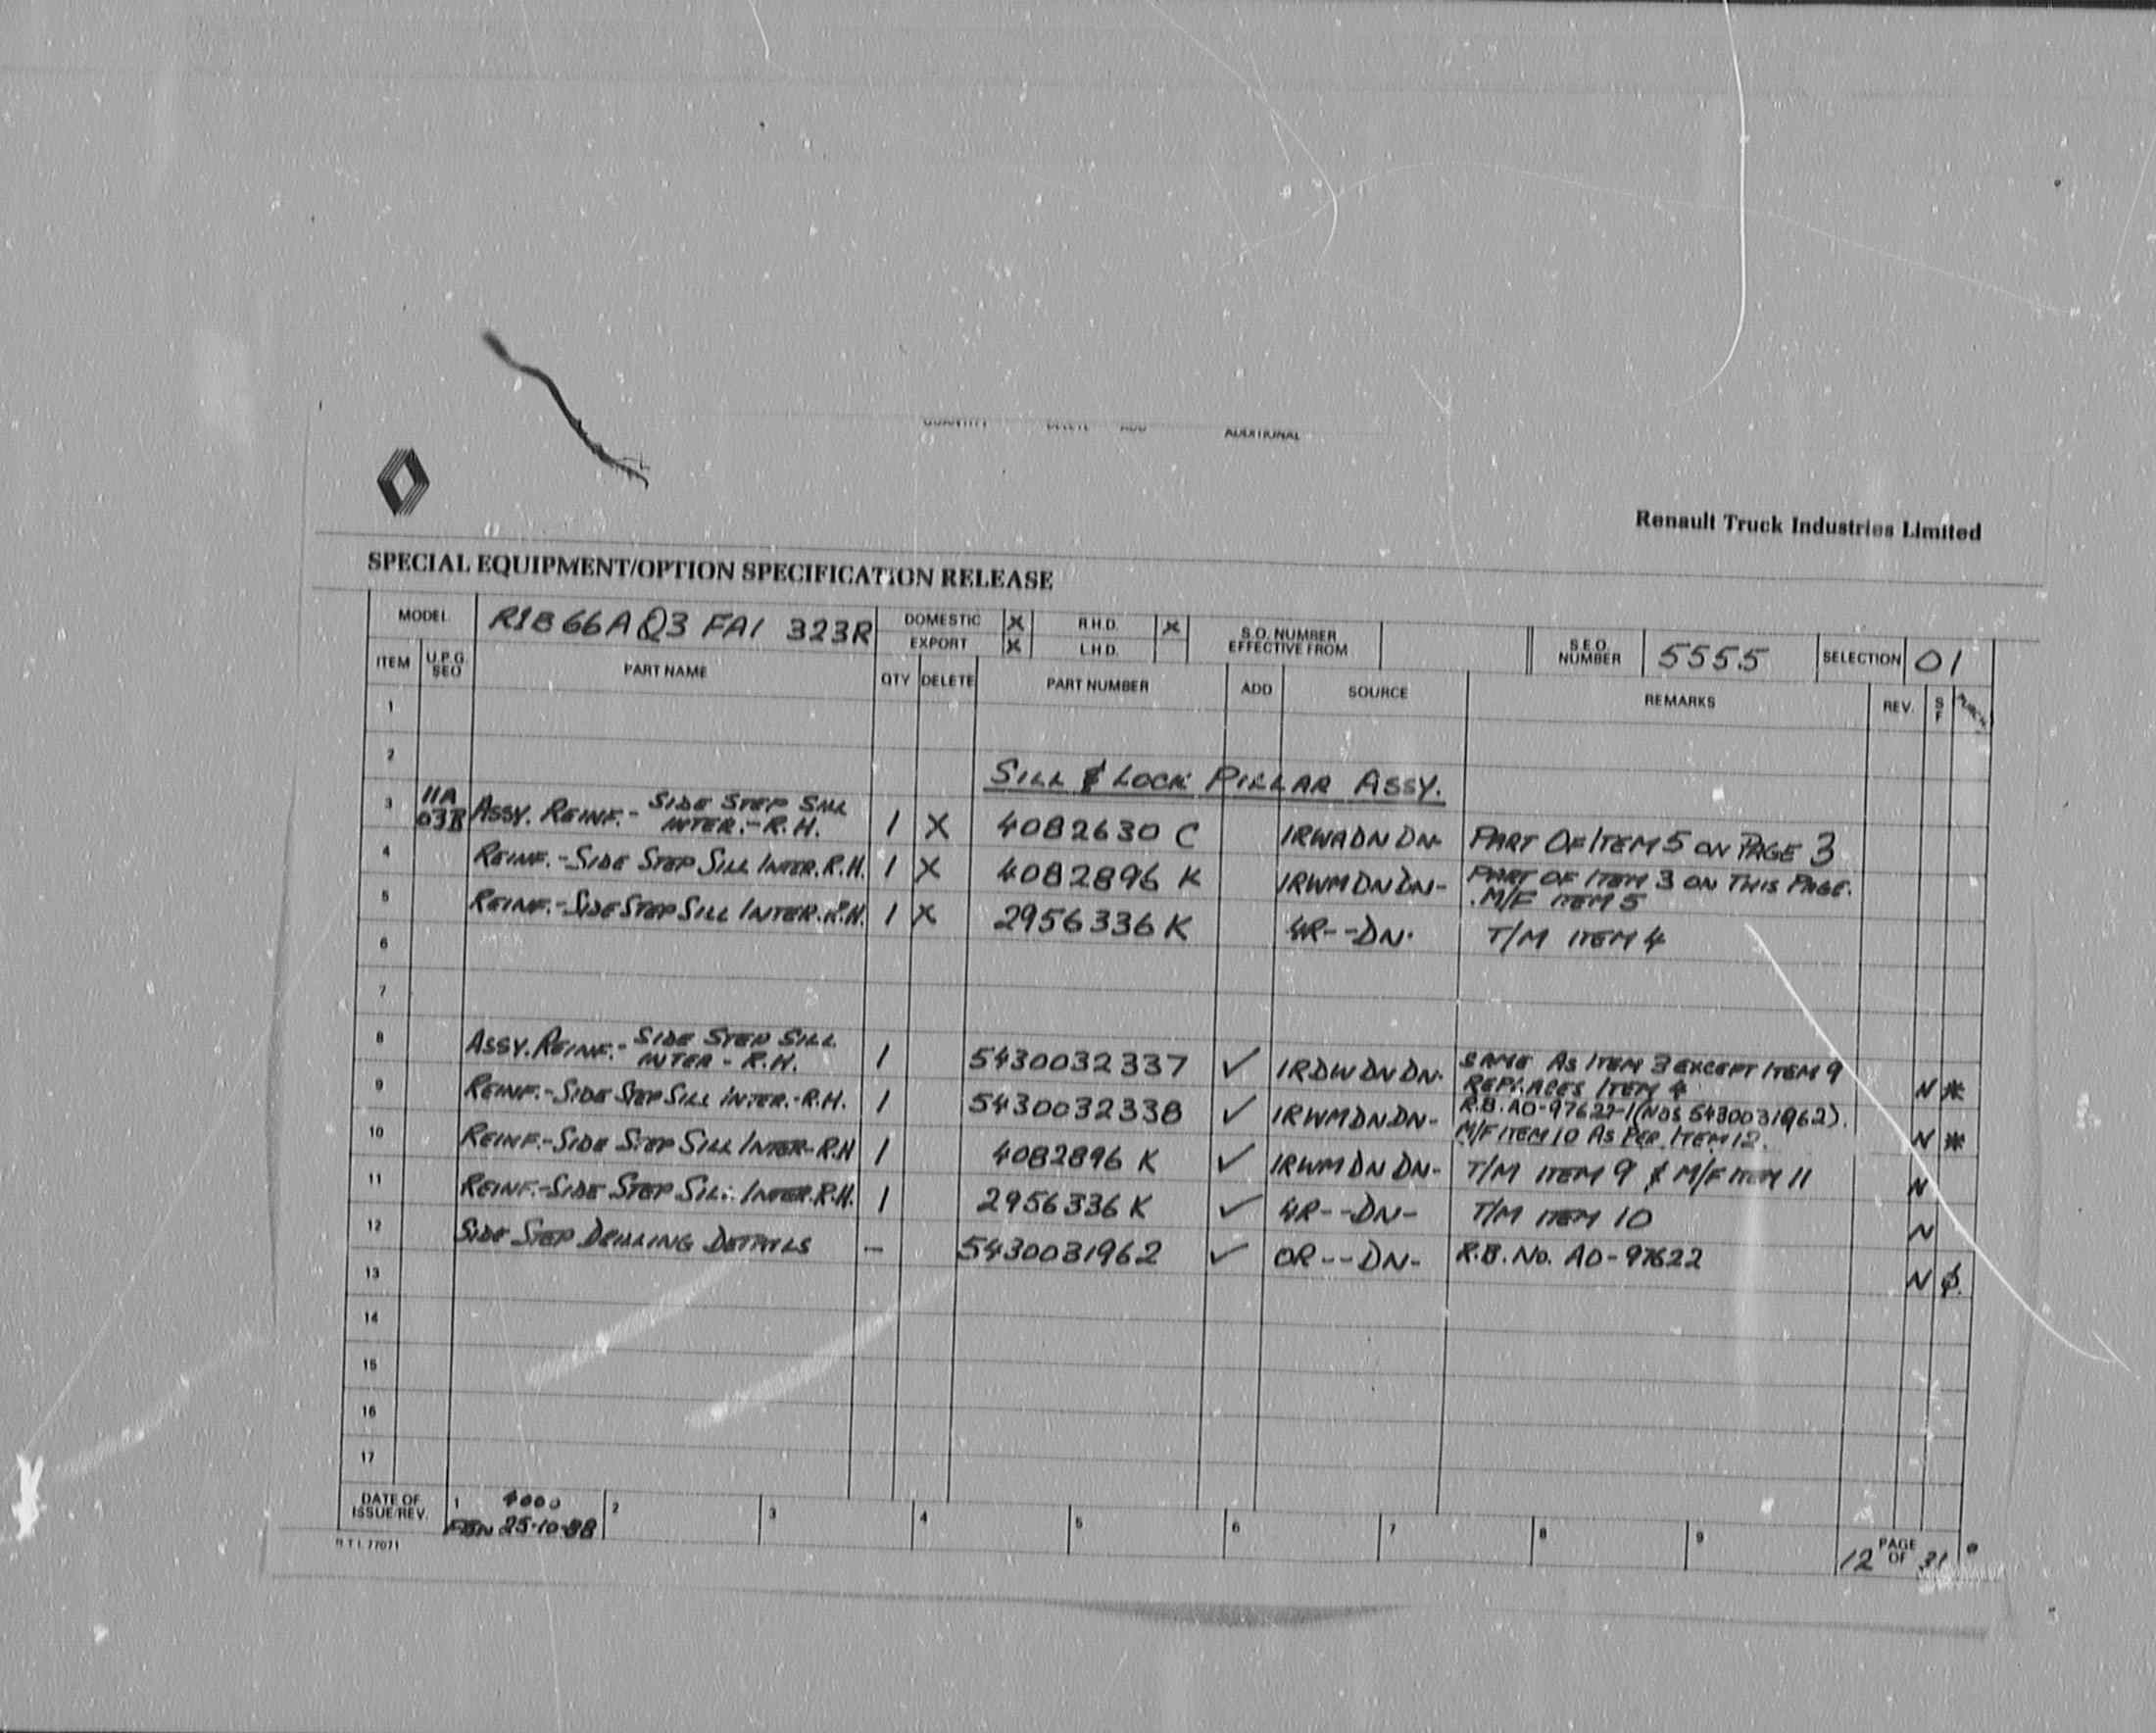 QUANTITY DELETE ADD ADDITIONAL
Renault Truck Industries Limited
SPECIAL EQUIPMENT/OPTION SPECIFICATION RELEASE
MODEL R1B66A Q3 FA1 323R DOMESTIC X R.H.D. X S.O. NUMBER EFFECTIVE FROM S.E.O. NUMBER 5555 SELECTION 01
EXPORT X L.H.D.
ITEM U.P.G. SEQ PART NAME QTY DELETE PART NUMBER ADD SOURCE REMARKS REV. S F
1
2 SILL & LOCK PILLAR ASSY.
3 11A 03B ASSY. REINF.- SIDE STEP SILL INTER.-R.H. 1 X 4082630 C 1RWADNDN- PART OF ITEM 5 ON PAGE 3
4 REINF.-SIDE STEP SILL INTER.R.H. 1 X 4082896 K 1RWMDNDN- PART OF ITEM 3 ON THIS PAGE.
M/F ITEM 5
5 REINF.-SIDE STEP SILL INTER.R.H. 1 X 2956336 K 4R--DN- T/M ITEM 4
6
7
8 ASSY. REINF.- SIDE STEP SILL INTER - R.H. 1 5430032337 ✓ 1RDWDNDN- SAME AS ITEM 3 EXCEPT ITEM 9
REPLACES ITEM 4 N *
9 REINF.-SIDE STEP SILL INTER.-R.H. 1 5430032338 ✓ 1RWMDNDN- R.B. AO-97622-1 (NOS 5430031962).
M/F ITEM 10 AS PER ITEM 12. N *
10 REINF.-SIDE STEP SILL INTER-R.H 1 4082896 K ✓ 1RWMDNDN- T/M ITEM 9 & M/F ITEM 11 N
11 REINF.-SIDE STEP SILL INTER.R.H. 1 2956336 K ✓ 4R--DN- T/M ITEM 10 N
12 SIDE STEP DRILLING DETAILS - 5430031962 ✓ OR--DN- R.B. No. AO-97622 N ϕ.
13
14
15
16
17
DATE OF ISSUE/REV. 1 25-10-88 2 3 4 5 6 7 8 9 12 PAGE OF 31
R.T.I. 77071